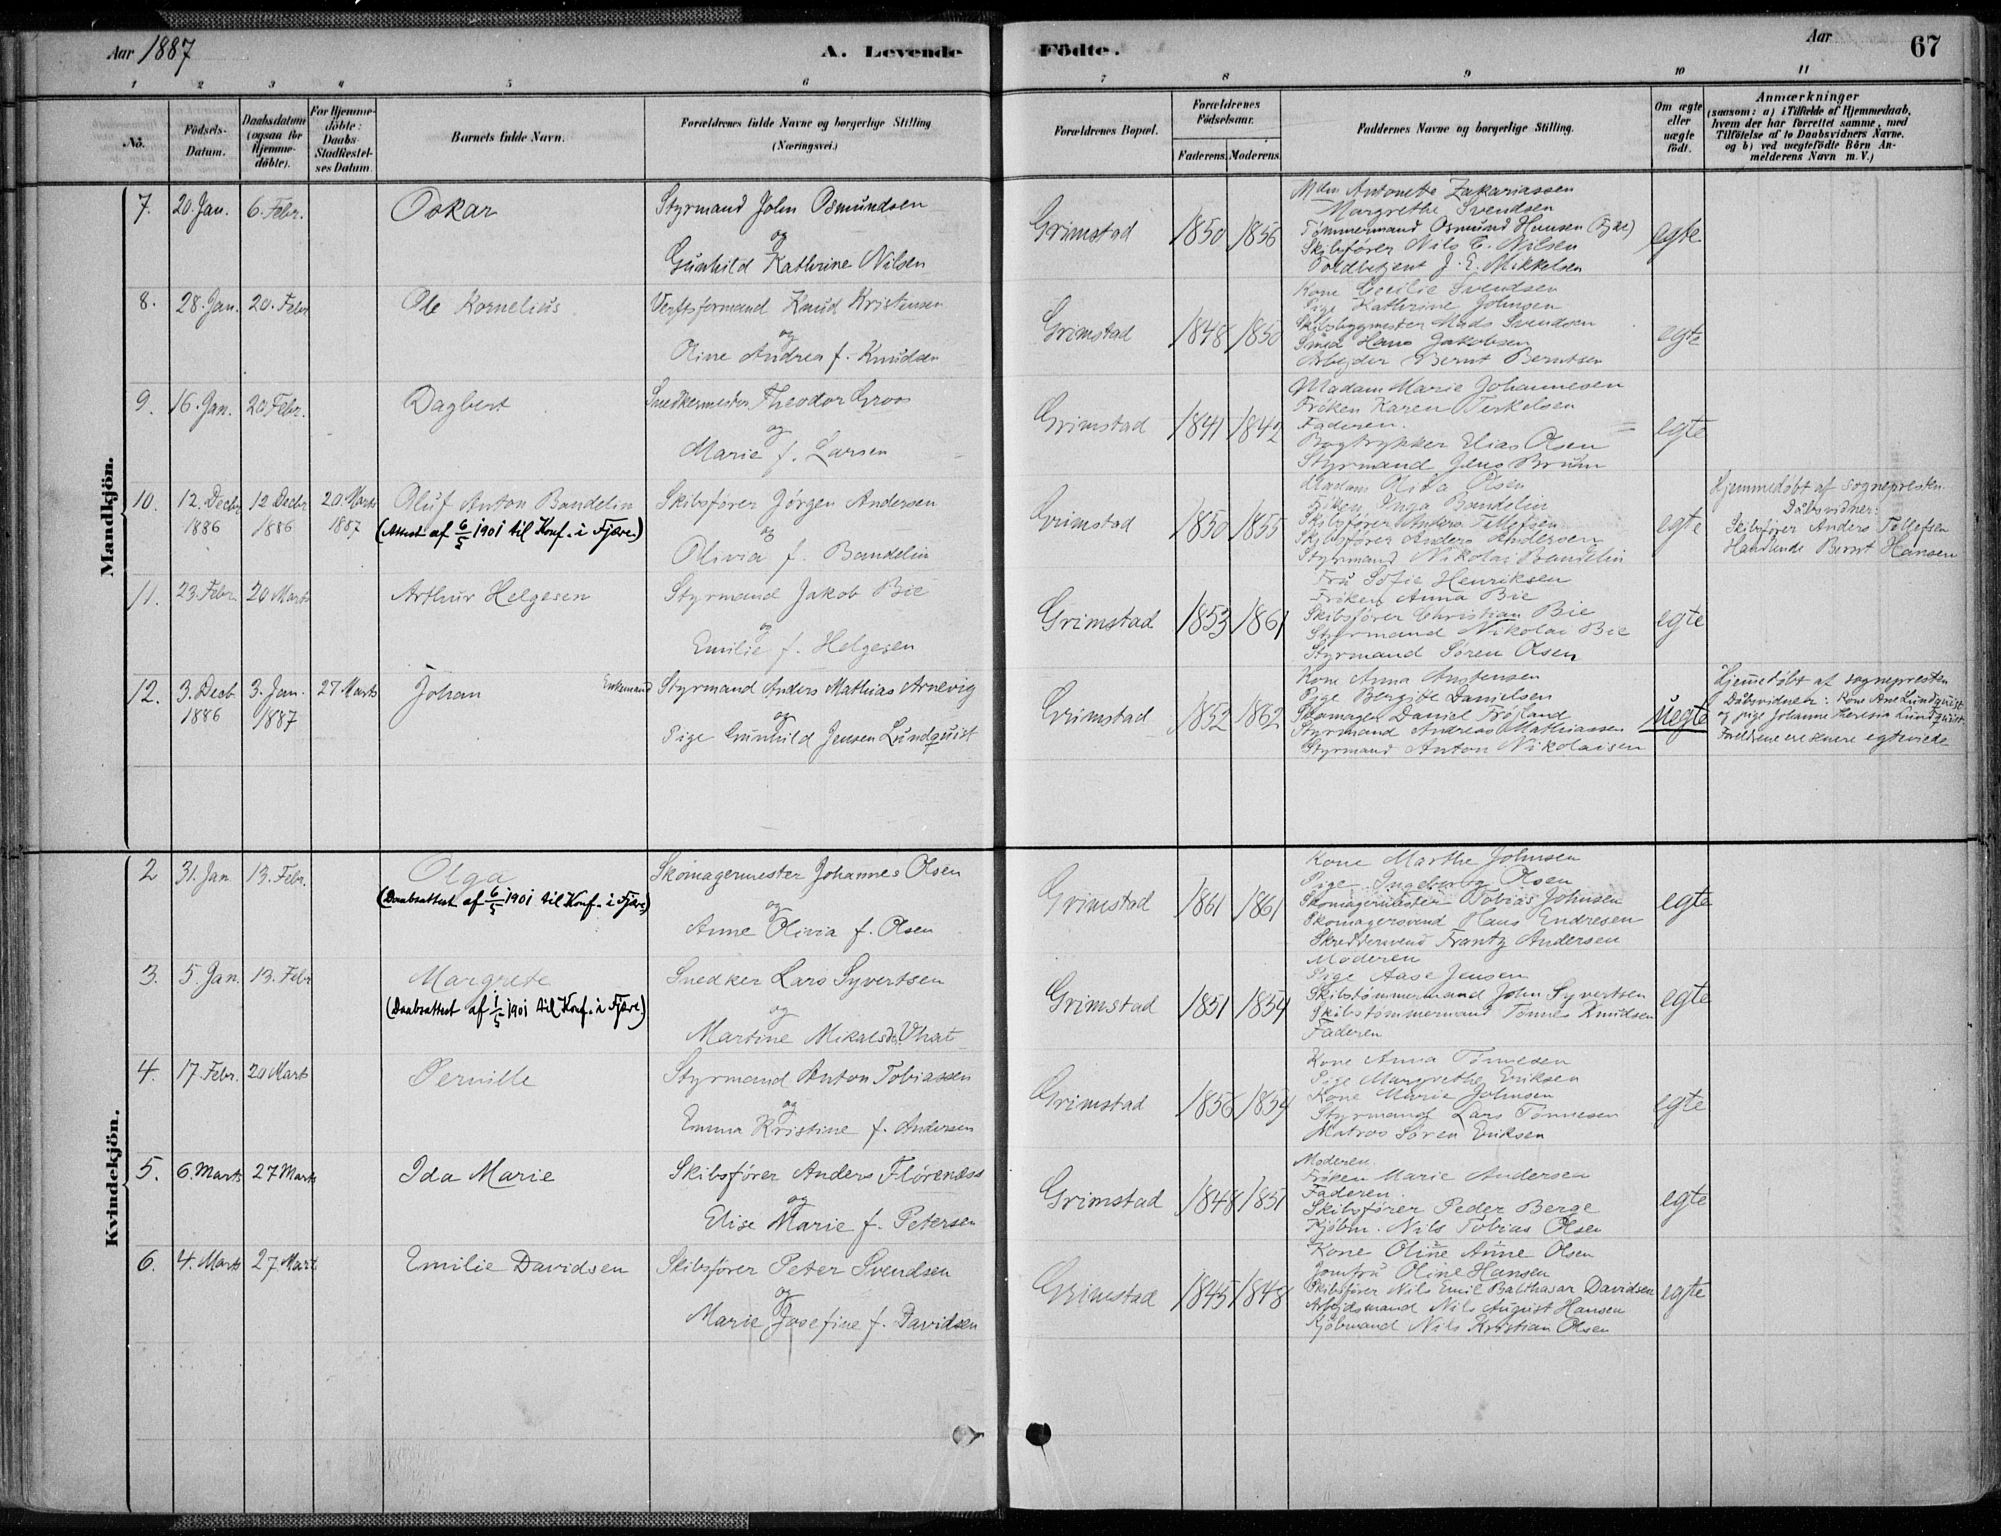 Aar 1887
A. Levende Födte.
Aar
67
1 2 3 4 5 6 7 8 9 10 11
No.
Födsels-Datum.
Daabsdatum (ogsaa for Hjemme-döbte).
For Hjemme-döbte: Daabs-Stadfæstel-ses Datum
Barnets fulde Navn.
Forældrenes fulde Navne og borgerlige Stilling (Næringsvei.)
Forældrenes Bopæl.
Forældrenes Födselsaar.
Faderens. Moderens.
Faddernes Navne og borgerlige Stilling.
Om ægte eller uægte födt.
Anmærkninger
(saasom: a) i Tilfælde af Hjemmedaab,
hvem der har forrettet samme, med
Tilföielse af to Daabsvidners Navne.
og b) ved uægtefödte Börn An-
melderens Navn m. V.)
Mandkjön.
7. 20. Jan. 6. Febr. Oskar
Styrmand John Osmundsen
og
Gunhild Kathrine Nilsen
Grimstad 1850 1856
Mdm Antonette Zakariassen
Margrethe Svendsen
Tömmermand Osmund Hansen (Fjære)
Skibsfører Nils C. Nilsen
Toldbetjent J. E. Mikkelsen
egte
8. 28. Jan. 20. Febr Ole Kornelius
Verftsformand Knud Kristensen
og
Oline Andrea f. Knudsen
Grimstad 1848 1850
Kone Cecilie Svendsen
Pige Kathrine Johnsen
Skibsbygmester Mads Svendsen
Smed Hans Jakobsen
Arbejder Bernt Berntsen
egte
9. 16. Jan. 20 Febr. Dagbert
Snedkermester Theodor Groos
og
Marie f. Larsen
Grimstad 1841 1842
Madam Marie Johannesen
Fröken Karen Terkelsen
Faderen.
Bogtrykker Elias Olsen
Styrmand Jens Bruun
egte
10. 12. Decbr 1886 12 Decbr 1886 20. Marts 1887 Oluf Anton Bandelin
(Attest af 6/5 1901 til Konf. i Fjære)
Skibsfører Jörgen Andersen
og
Olivia f. Bandelin
Grimstad 1850 1855
Madam Olida Olsen
Fröken Inga Bandelin
Skibsfører Anders Tellefsen
Skibsfører Anders Andersen
Styrmand Nikolai Bandelin
egte
Hjemmedöbt af sognepresten
Dåbsvidner:
Skibsfører Anders Tellefsen
Handlende Bernt Hansen
11. 23. Febr. 20 Marts Arthur Helgesen
Styrmand Jakob Bie
og
Emilie f. Helgesen
Grimstad 1853 1861
Fru Sofie Henriksen
Fröken Anna Bie
Skibsfører Christian Bie
Styrmand Nikolai Bie
Styrmand Sören Olsen
egte
12. 3. Decb 1886 3. Jan. 1887 27 Marts Johan
Enkemand Styrmand Anders Mathias Arnevig
og
Pige Gunhild Jensen Lundquist
Grimstad 1852 1862
Kone Anna Anstensen
Pige Bergitte Danielsen
Skomager Daniel Fröjland
Styrmand Andreas Mathiassen
Styrmand Anton Nikolaisen
uegte
Hjemmedöbt af sognepresten
Dåbsvidner: Kone Ane Lundquist
og pige Johanne Theresia Lundquist
Foreldrene ere senere egteviede
Kvindekjön.
2 31. Jan 13. Febr. Olga
(Daabsattest af 6/5 1901 til Konf. i Fjære)
Skomagermester Johannes Olsen
og
Anne Olivia f. Olsen
Grimstad 1861 1861
Kone Marthe Johnsen
Pige Ingeborg Olsen
Skomagermester Tobias Johnsen
Skomagersvend Hans Endresen
Skreddersvend Frantz Andersen
egte
3. 5. Jan 13. Febr Margrete
(Daabsattest af 1/5 1901 til Konf. i Fjære)
Snedker Lars Syvertsen
og
Martine Mikalsd.
Grimstad 1851 1854
Moderen
Pige Aase Jensen
Skibstömmermand John Syvertsen
Skibstömmermand Tönnes Knudsen
Faderen
egte
4. 17. Febr. 20 Marts Pernille
Styrmand Anton Tobiassen
og
Emma Kristine f. Andersen
Grimstad 1856 1854
Kone Anna Tönnesen
Pige Margrethe Eriksen
Kone Marie Johnsen
Styrmand Lars Tönnesen
Matros Sören Eriksen
egte
5. 6. Marts 27 Marts Ida Marie
Skibsfører Anders Flörenæss
og
Elise Marie f. Petersen
Grimstad 1848 1851
Moderen.
Fröken Marie Andersen
Faderen.
Skibsfører Peder Berge
Kjöbm. Nils Tobias Olsen
egte
6. 4. Marts 27. Mart Emilie Davidsen
Skibsfører Peter Svendsen
og
Marie Josefine f. Davidsen
Grimstad 1845 1848
Kone Oline Anne Olsen
Jomfru Oline Hansen
Skibsfører Nils Emil Balthasar Davidsen
Arbejdsmand Nils August Hansen
Kjöbmand Nils Kristian Olsen
egte